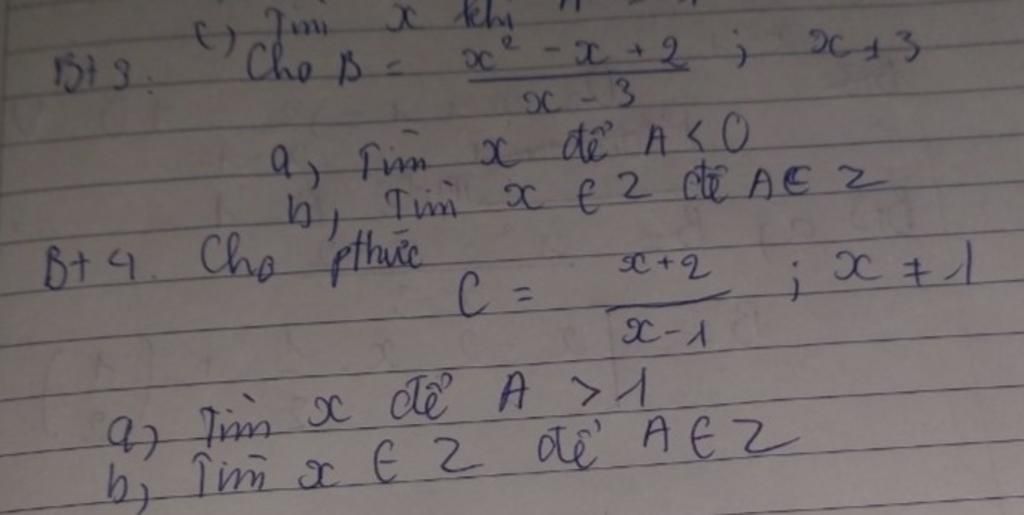 c, Tìm x khi
Bt 3. Cho B = \frac{x² - x + 2}{x - 3} ; x ≠ 3
a, Tìm x để A < 0
b, Tìm x ∈ Z để A ∈ Z
Bt 4. Cho pthức
C = \frac{x + 2}{x - 1} ; x ≠ 1
a, Tìm x để A > 1
b, Tìm x ∈ Z để A ∈ Z